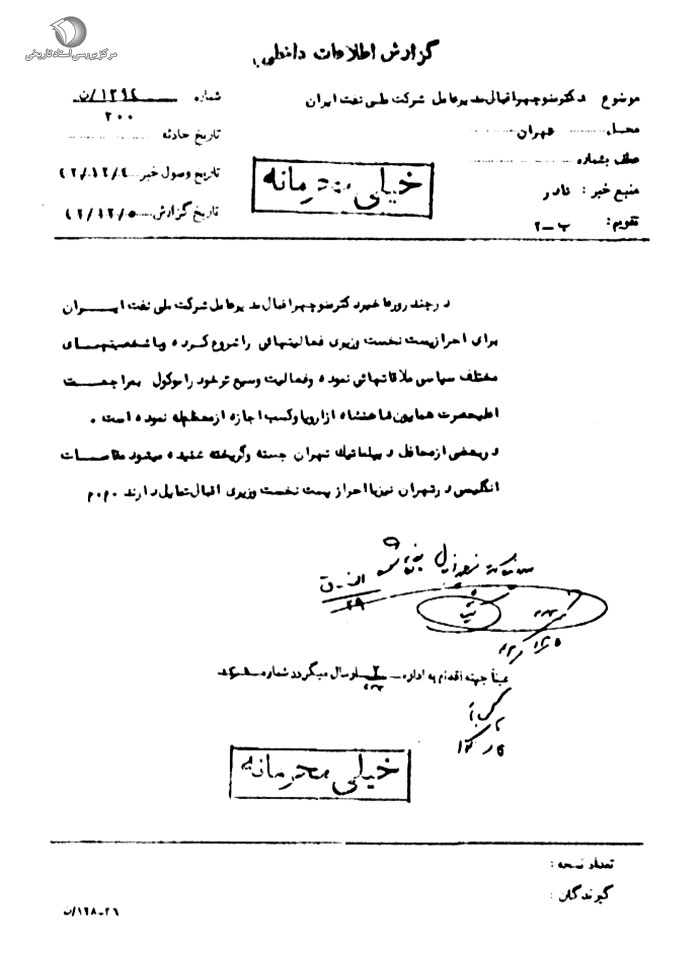 مرکز بررسی اسناد تاریخی
گزارش اطلاعات داخلی
موضوع دکتر منوچهر اقبال مدیر عامل شرکت ملی نفت ایران
شماره ۱۲۹۴/ن
۲۰۰
محل تهران
تاریخ حادثه
عطف بشماره
تاریخ وصول خبر ۴۲/۱۲/۴
خیلی محرمانه
منبع خبر : نادر
تاریخ گزارش ۴۲/۱۲/۵
تقویم: ب-۲
در چند روزه اخیر دکتر منوچهر اقبال مدیر عامل شرکت ملی نفت ایران
برای احراز پست نخست وزیری فعالیتهائی را شروع کرده و با شخصیتهای
مختلف سیاسی ملاقاتهائی نموده و فعالیت وسیع تر خود را موکول بمراجعت
اعلیحضرت همایون شاهنشاه از اروپا و کسب اجازه از معظم له نموده است .
در بعضی از محافل دیپلماتیک تهران جسته و گریخته شنیده میشود مقامات
انگلیس در تهران نیز با احراز پست نخست وزیری اقبال تمایل دارند
الف-ق
۲۹
عیناً جهته اقدام به اداره ارسال میگردد شماره
خیلی محرمانه
تعداد نسخه :
گیرندگان :
۱۲۸-۲۶/ن